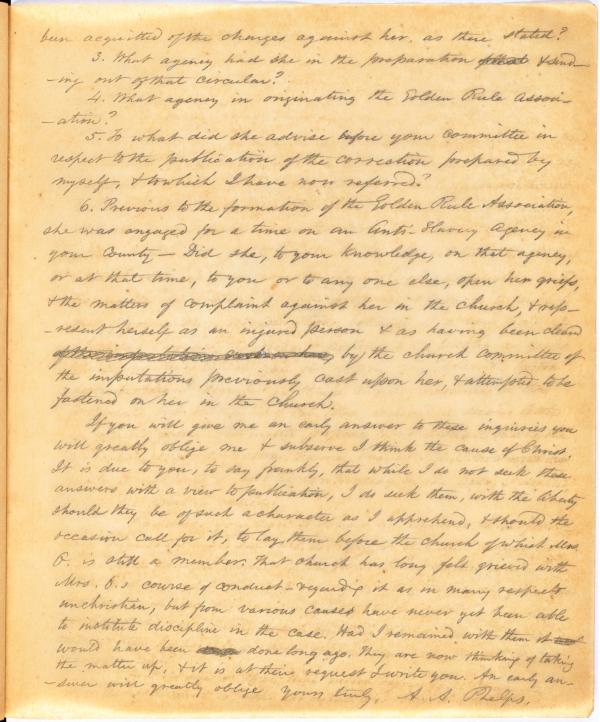 been acquitted of the charges against her, as there stated?
3. What agency had she in the preparation & send-
-ing out of that circular?
4. What agency in originating the Golden Rule Associ-
-ation?
5. To what did she advise before your committee in
respect to the publication of the correction prepared by
myself, & to which I have now referred?
6. Previous to the formation of the Golden Rule Association,
she was engaged for a time on an Anti-Slavery Agency in
your County — Did she, to your knowledge, on that agency,
or at that time, to you or to any one else, open her griefs,
& the matters of complaint against her in the church, & rep-
-resent herself as an injured person & as having been cleared
by the church committee of
the imputations previously cast upon her, & attempted to be
fastened on her in the church.
If you will give me an early answer to these inquiries you
will greatly oblige me & subserve I think the cause of Christ.
It is due to you, to say frankly, that while I do not seek these
answers with a view to publication, I do seek them, with the liberty
should they be of such a character as I apprehend, & should the
occasion call for it, to lay them before the church of which Mrs.
P. is still a member. That church has long felt grieved with
Mrs. P.s course of conduct – regarding it as in many respects
unchristian, but from various causes have never yet been able
to institute discipline in the case. Had I remained with them it
would have been done long ago. They are now thinking of taking
the matter up, & it is at their request I write you. An early an-
-swer will greatly oblige yours truly, A. A. Phelps.